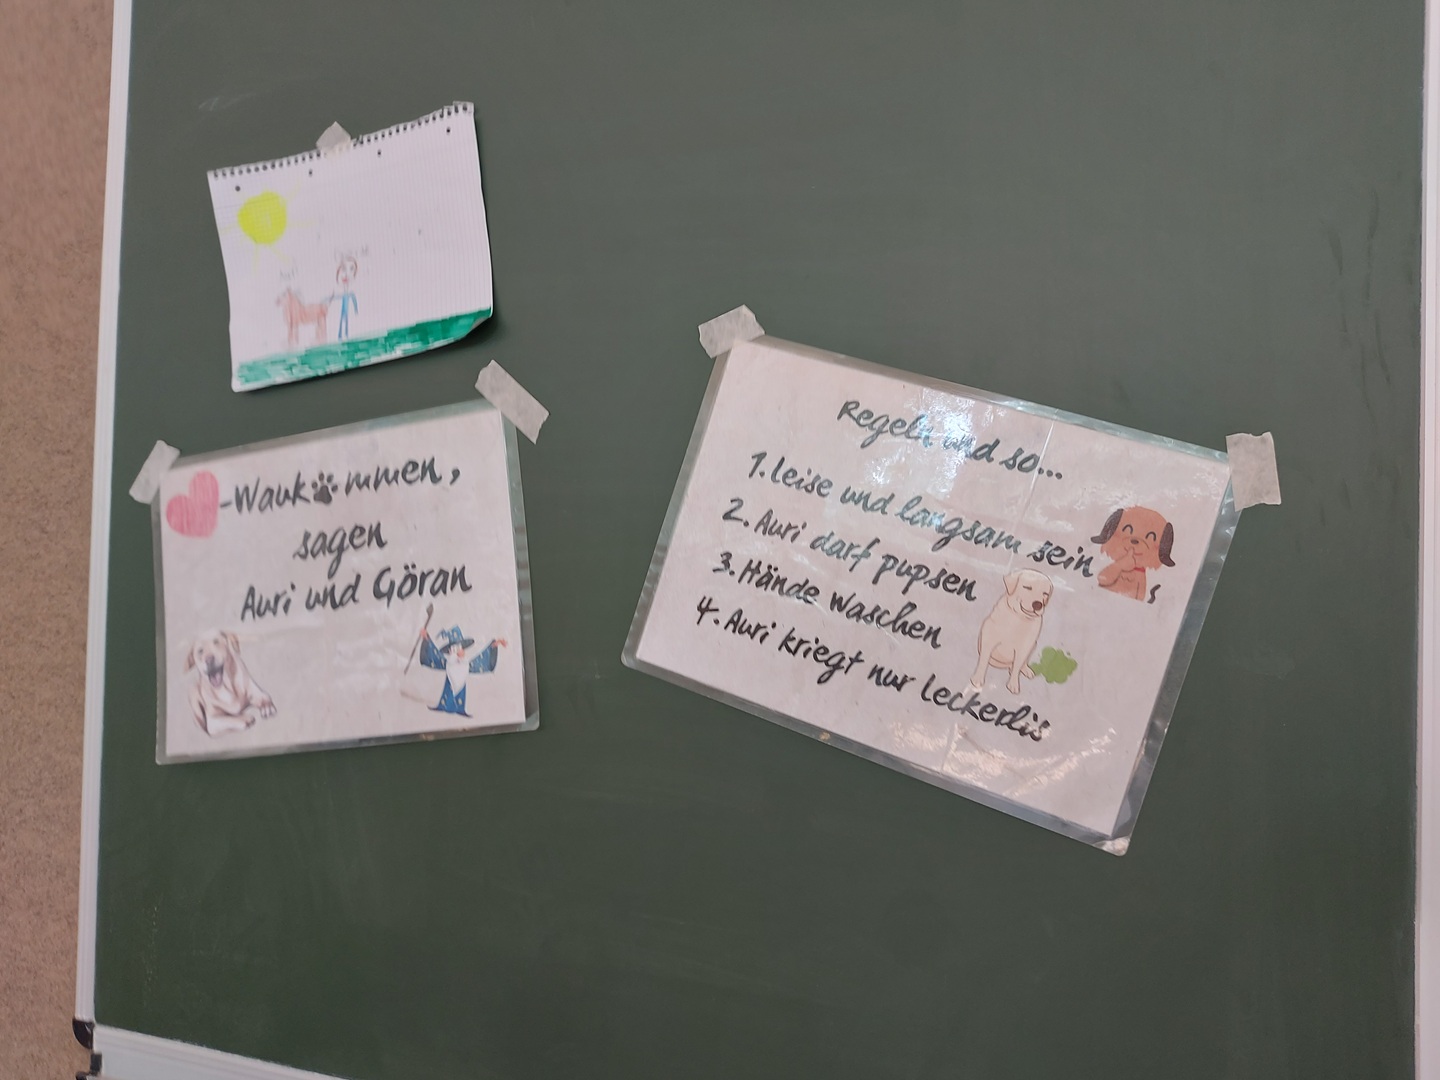 -Waukmmen,
sagen
Auri und Göran
Regeln und so...
1. Leise und langsam sein
2. Auri darf pupsen
3. Hände waschen
4. Auri kriegt nur Leckerlis